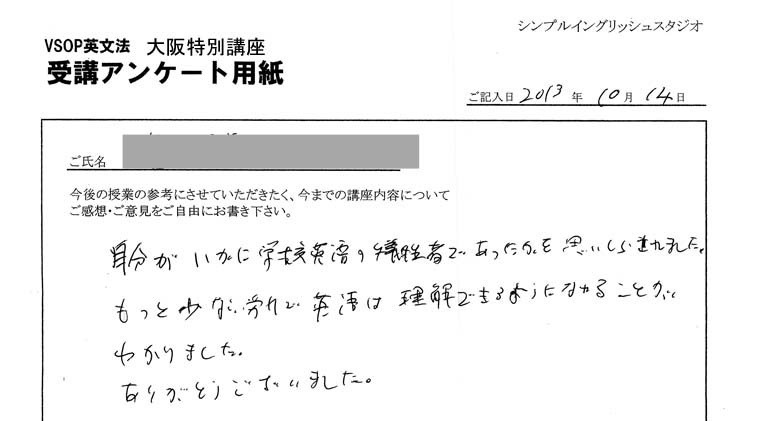 シンプルイングリッシュスタジオ
VSOP英文法 大阪特別講座
受講アンケート用紙
ご記入日 2013 年 10 月 14 日
ご氏名
今後の授業の参考にさせていただきたく、今までの講座内容について
ご感想・ご意見をご自由にお書き下さい。
自分がいかに学校英語の犠牲者であったかを思いしらされました。
もっと少ない労力で英語は理解できるようになれることが
わかりました。
ありがとうございました。